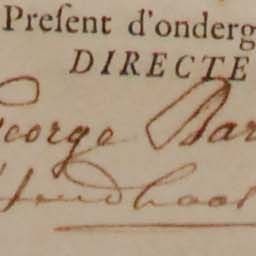 Preſent d'onderg
DIRECTE
George Bar